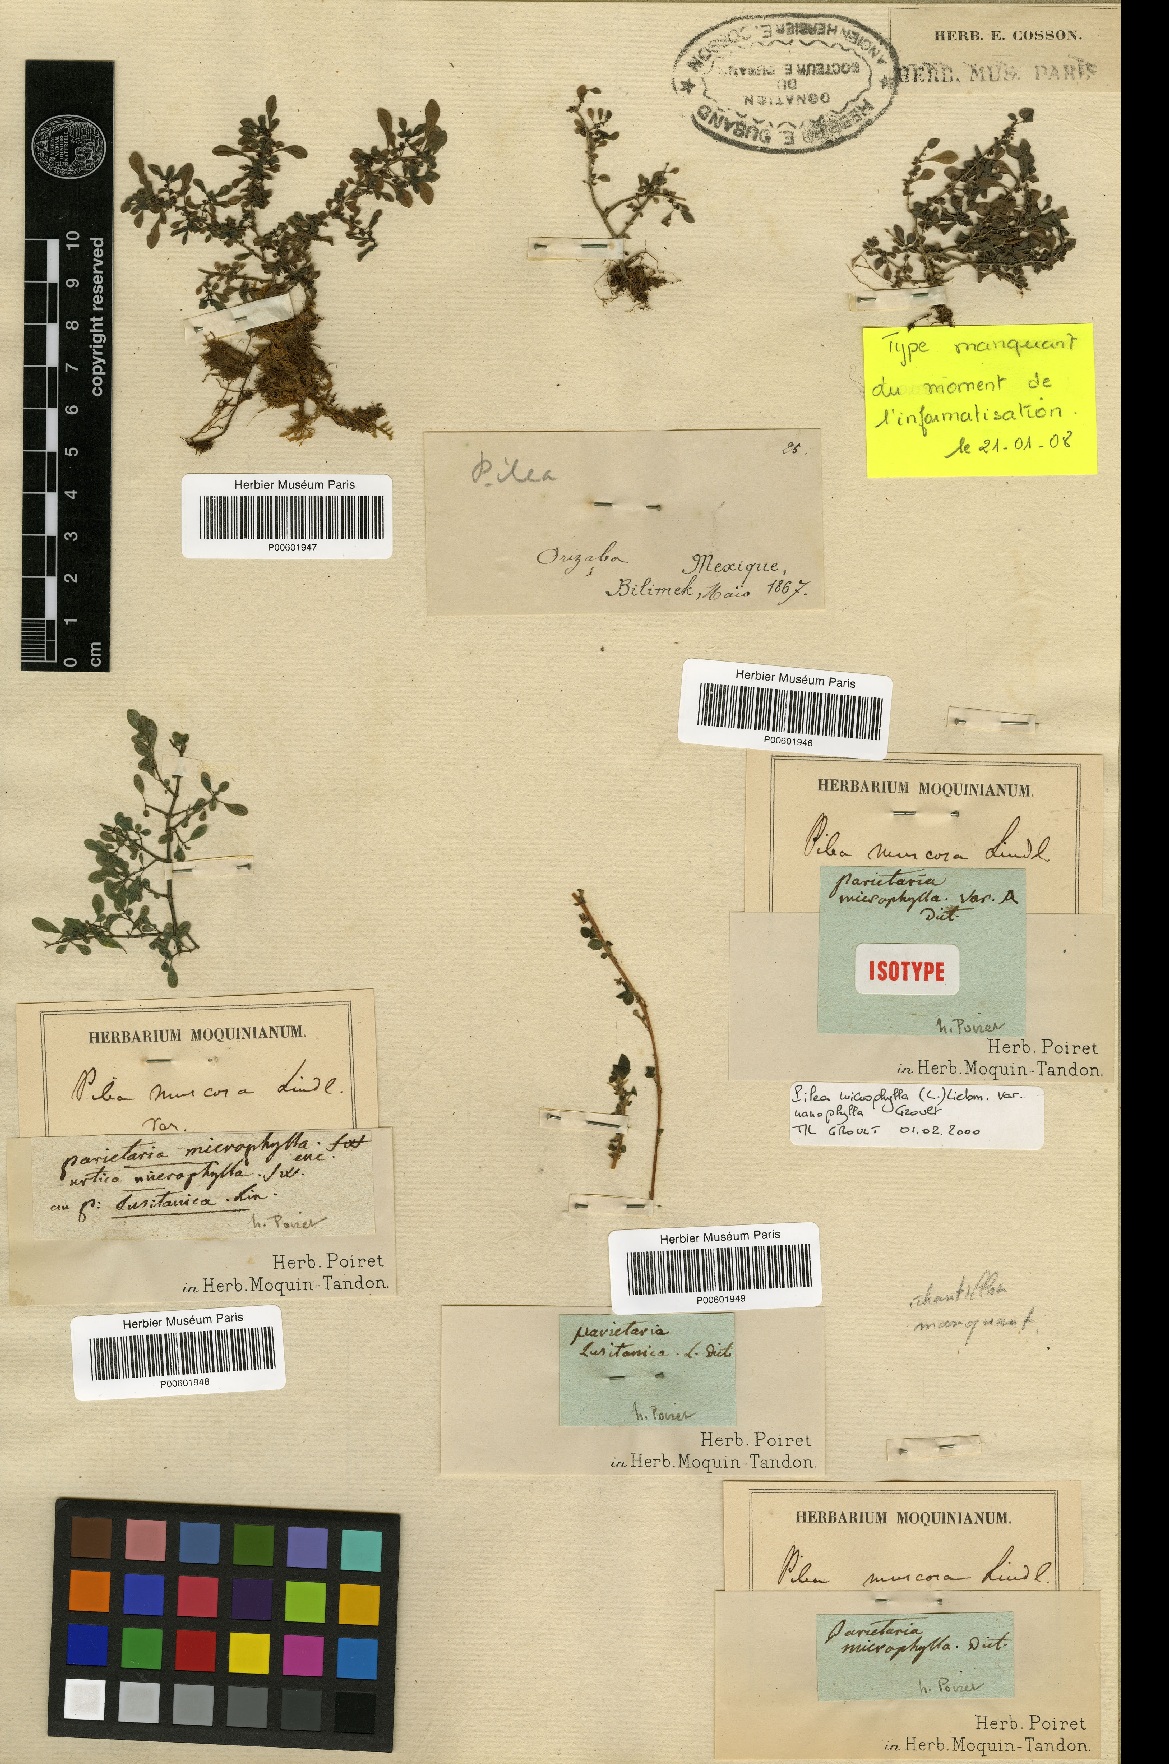 HERB. E. COSSON.
HERB. MUS. PARIS
HERBIER E. DURAND
ANCIEN HERBIER E. COSSON
DONATION
DU
DOCTEUR E. DURAND
copyright reserved
cm 0 1 2 3 4 5 6 7 8 9 10
Type manquant
du moment de
l'informatisation.
le 21-01-08
Herbier Muséum Paris
P00601947
Pilea
Orizaba
Mexique,
Bilimek, 1867.
Herbier Muséum Paris
P00601946
HERBARIUM MOQUINIANUM.
Pilea muscosa Lindl.
parietaria
microphylla. Var. A
Dict.
ISOTYPE
h. Poiret
Herb. Poiret
in Herb. Moquin-Tandon.
Pilea microphylla (L.) Liebm. var.
nanophylla Groult
ML GROULT 01.02.2000
HERBARIUM MOQUINIANUM.
Pilea muscosa Lindl.
Var.
parietaria microphylla.
enc.
urtica microphylla. Sw.
an p: Lusitanica. Lin.
h. Poiret
Herb. Poiret
in Herb. Moquin-Tandon.
Herbier Muséum Paris
P00601948
Herbier Muséum Paris
P00601949
parietaria
Lusitanica. L. Dict
h. Poiret
Herb. Poiret
in Herb. Moquin-Tandon.
échantillon
manquant
HERBARIUM MOQUINIANUM.
Pilea muscosa Lindl.
Parietaria
microphylla. Dict.
h. Poiret
Herb. Poiret
in Herb. Moquin-Tandon.